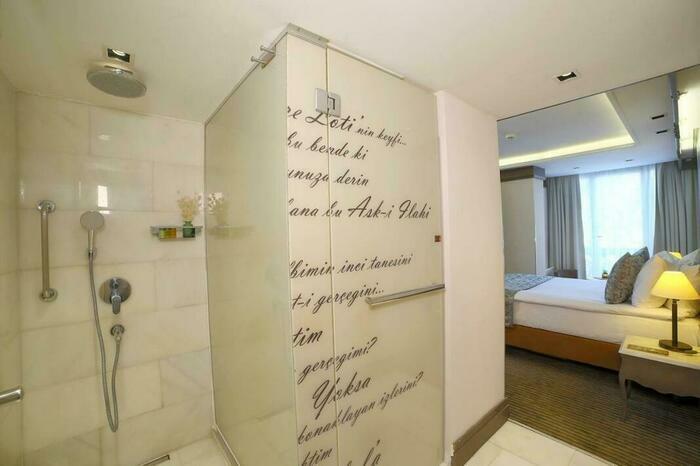 re Loti'nin keyfi...
bu bende ki
unuza derin
dana bu Ask-i Ilahi
lbimin inci tanesini
t-i gerçeğini...
tim
gerçeğimi?
Yoksa
konaklayan izlerini?
ktim
la'a